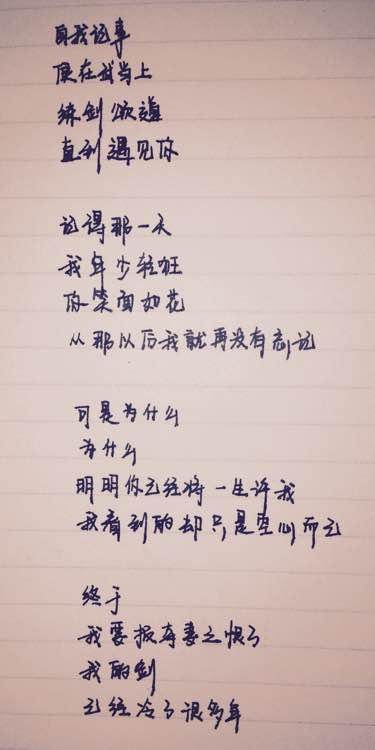 自我记事
便在武当上
练剑颂道
直到遇见你
记得那一天
我年少轻狂
你笑面如花
从那以后我就再没有忘记
可是为什么
为什么
明明你已经将一生许我
我看到的却只是空心而已
终于
我要报夺妻之恨了
我的剑
已经冷了很多年